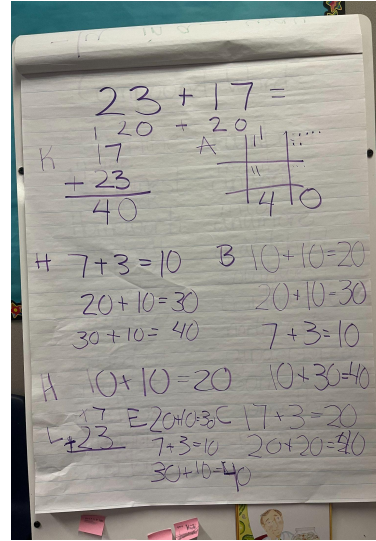 23 + 17 =
20 + 20
K
1
17
+ 23
40
A
40
H 7+3=10
20+10=30
30+10= 40
B 10+10=20
20+10=30
7+3=10
10+30=40
H 10+10=20
L 17
+23
E 20+10=30
7+3=10
30+10=40
C 17+3=20
20+20=40